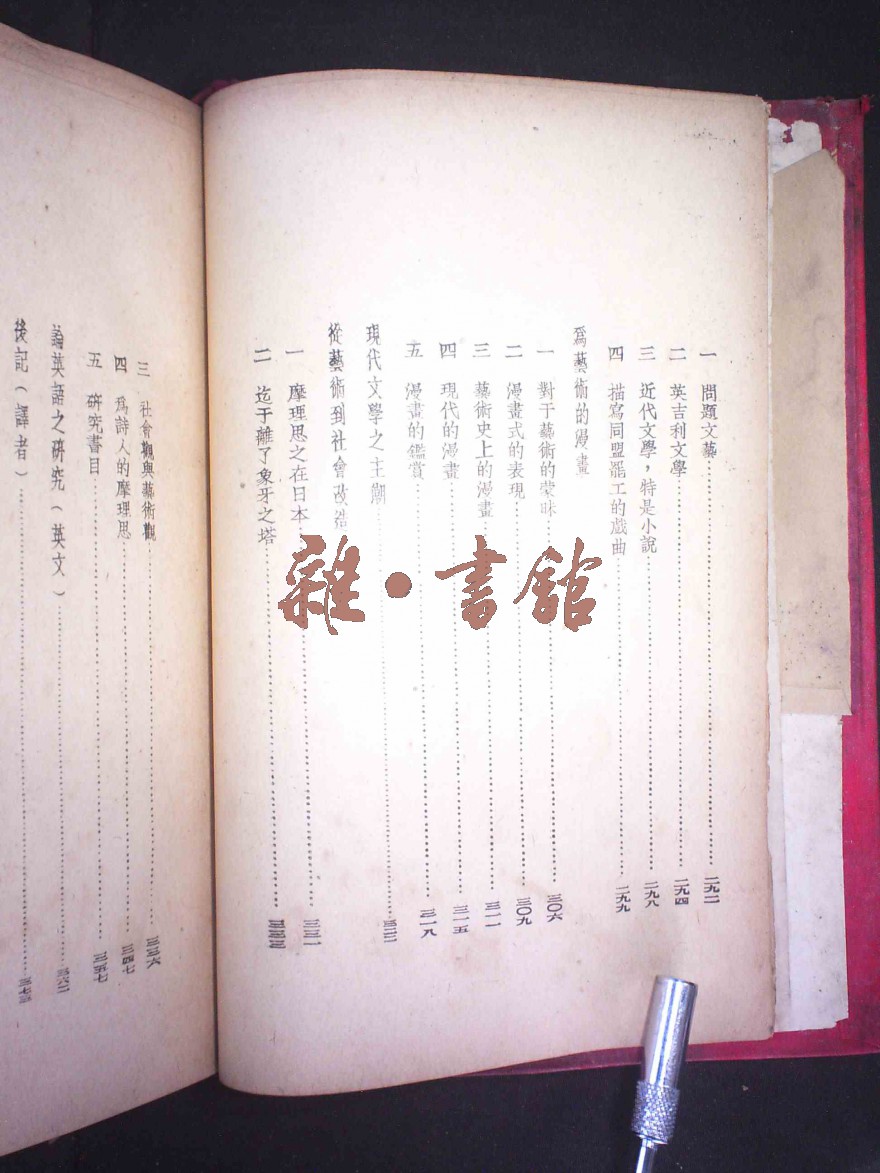 一　問題文藝……二九二
二　英吉利文學……二九四
三　近代文學，特是小說……二九八
四　描寫同盟罷工的戲曲……二九九
爲藝術的漫畫
一　對于藝術的蒙昧……三〇六
二　漫畫式的表現……三〇九
三　藝術史上的漫畫……三一一
四　現代的漫畫……三一五
五　漫畫的鑑賞……三一八
現代文學之主潮……三二二
從藝術到社會改造
一　摩理思之在日本……三三一
二　迄于離了象牙之塔……三三三
三　社會觀與藝術觀……三三六
四　爲詩人的摩理思……三四七
五　硏究書目……三五七
論英語之硏究（英文）……三六二
後記（譯者）……
雜・書館